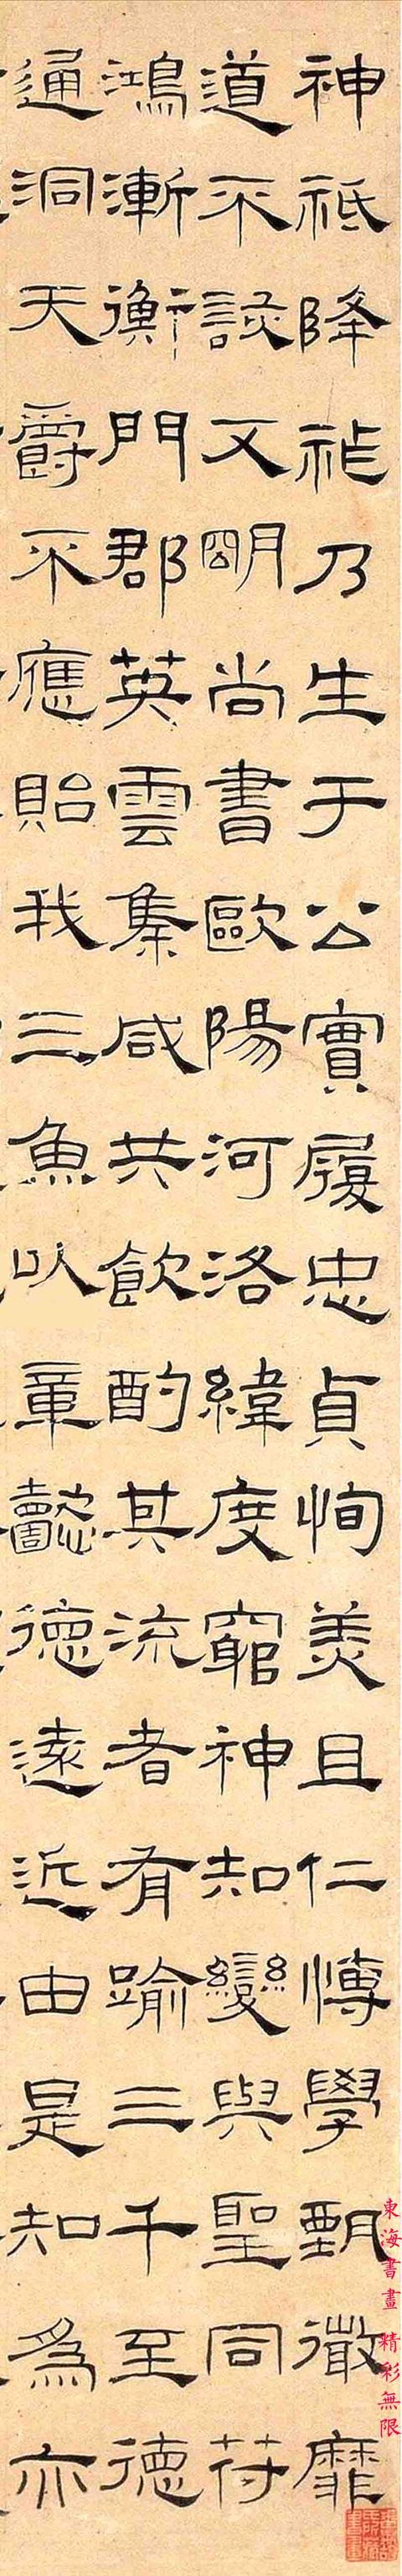 神祇降祉乃生于公實履忠貞恂美且仁博學甄微靡
道不該又明尚書歐陽河洛緯度窮神知變與聖同苻
鴻漸衡門郡英雲集咸共飲酌其流者有踰三千至德
通洞天爵不應貽我三魚以章懿德遠近由是知為亦
東海書畫 精彩無限